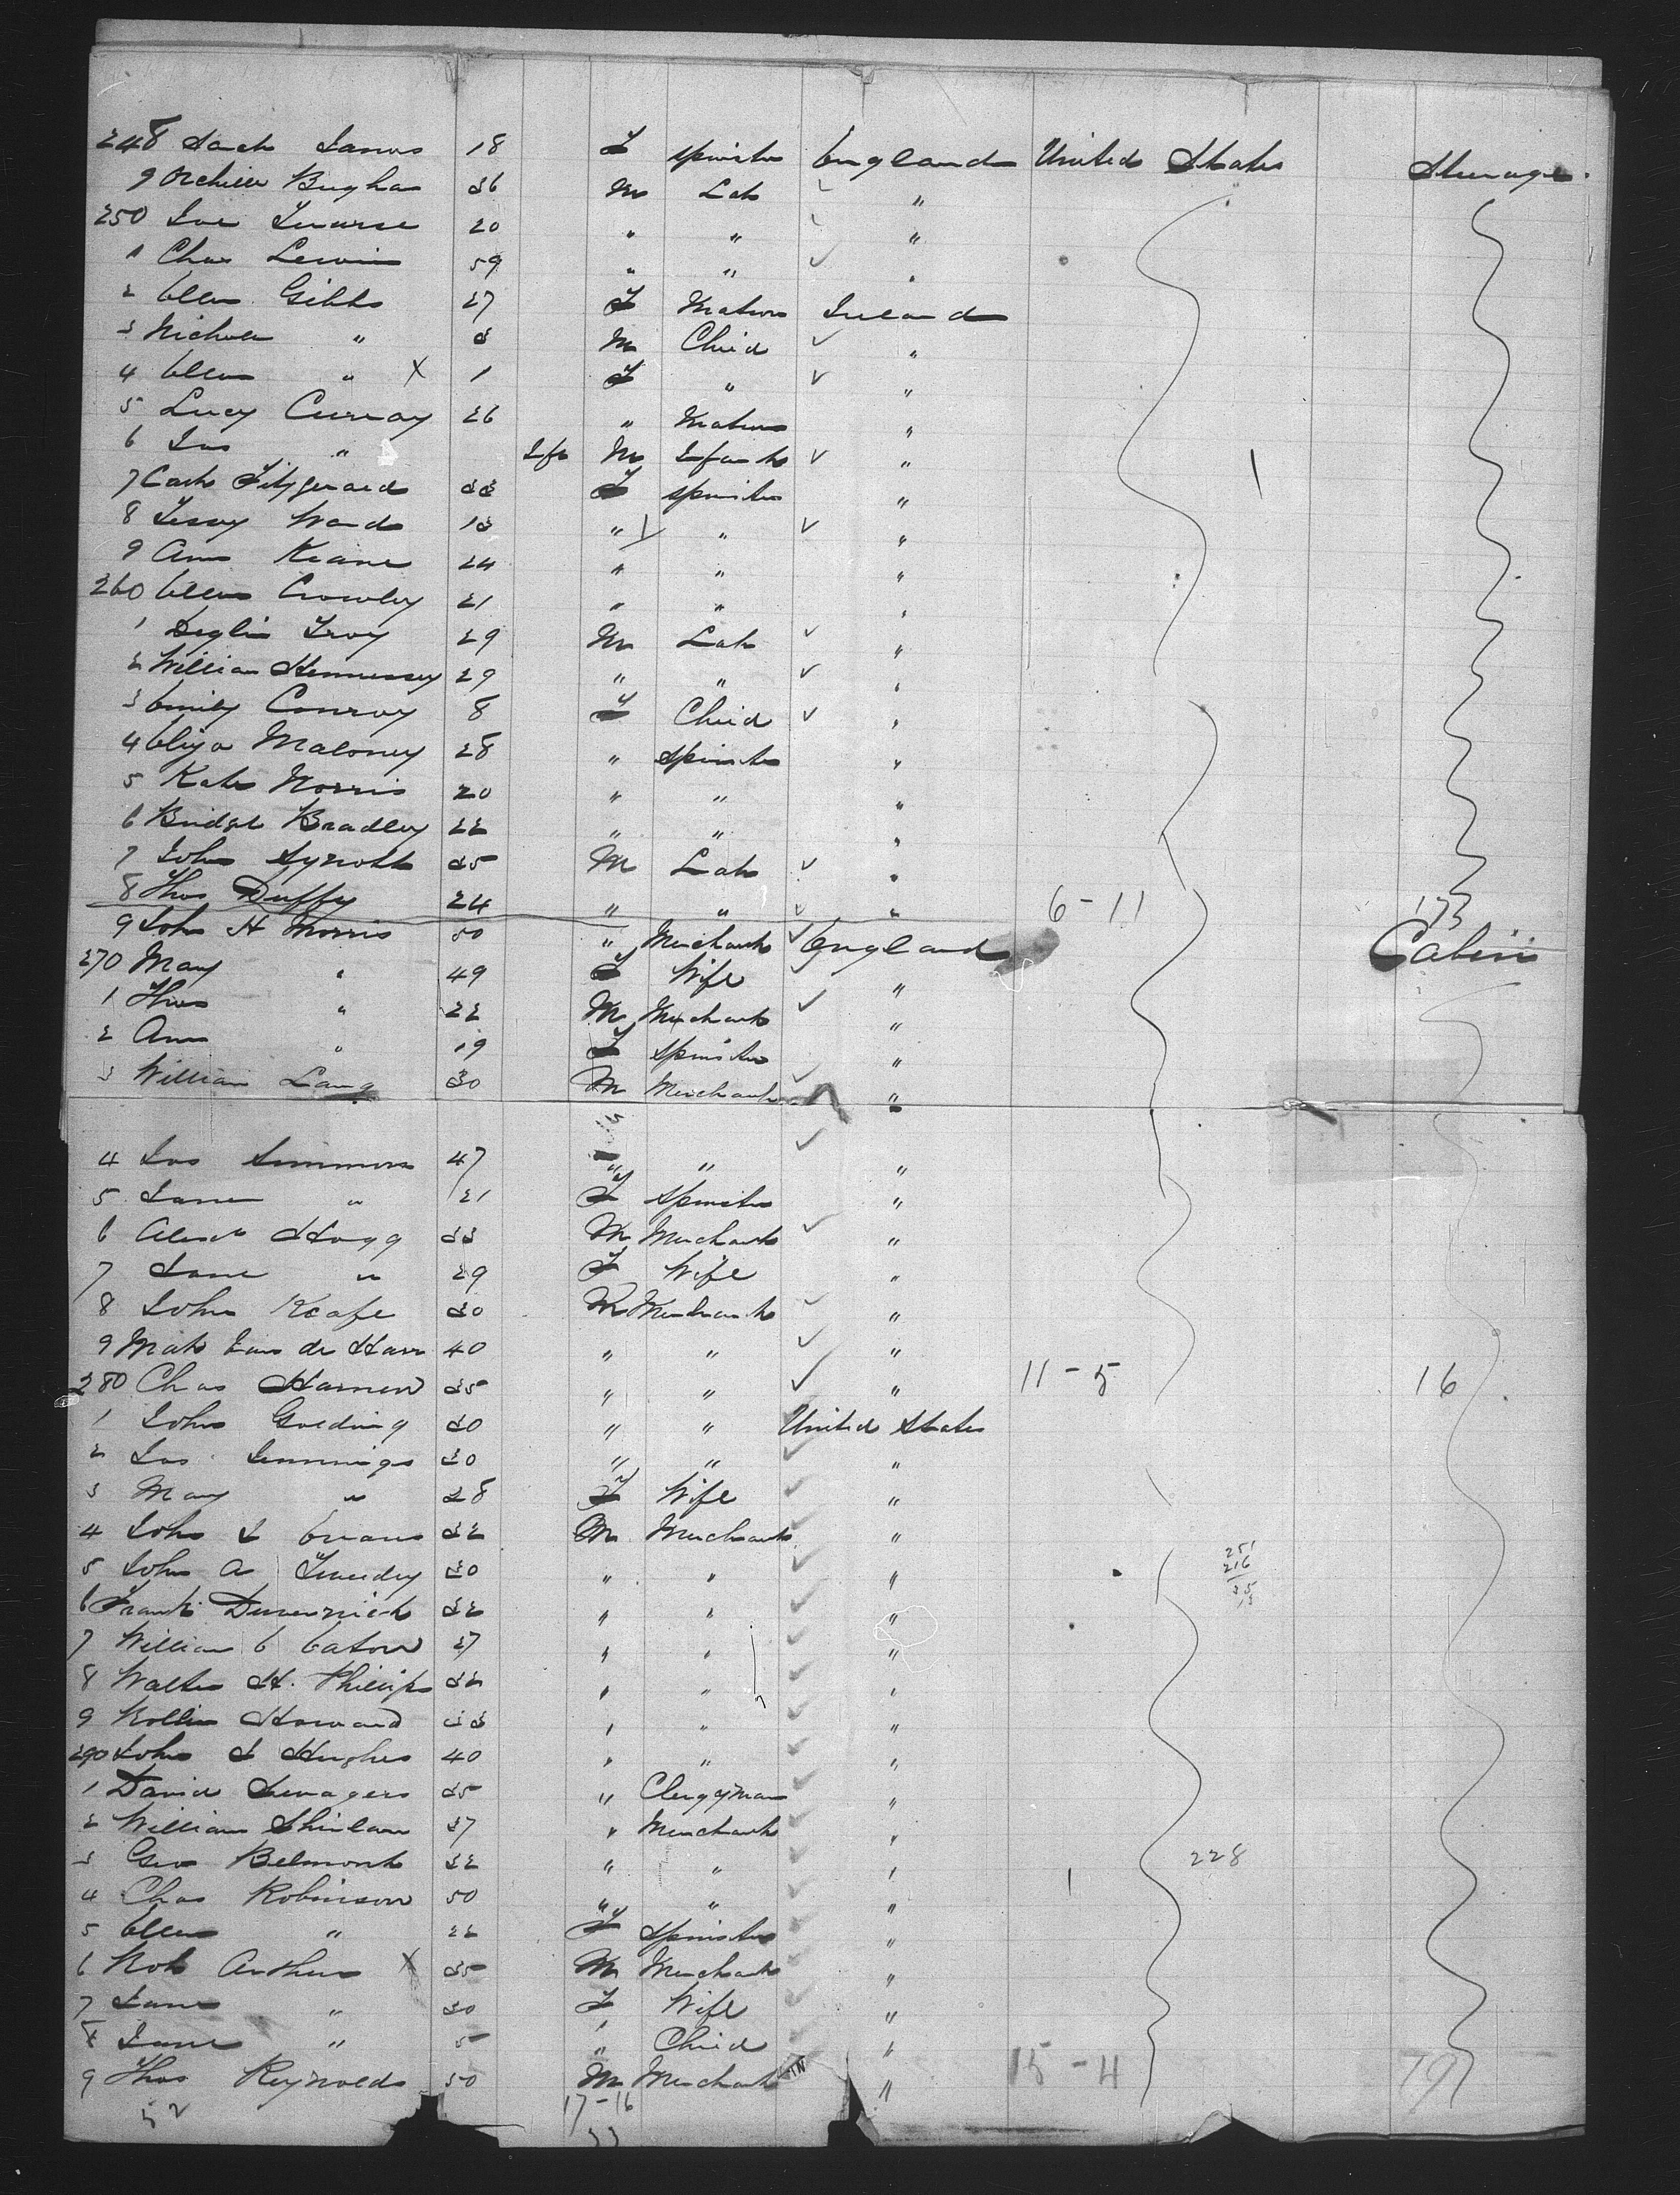 248 Sarah James 18 F Spinster England United States Steerage
9 36 M Lab "
250 20 " " "
1 Chas Lewin 59 " " "
2 Ellen Gibbs 27 F Matron Ireland
3 Nicholas " 3 M Child "
4 Ellen " X 1 F " "
5 Lucy Curray 26 " Matron "
6 Jas " Inft M Infant "
7 Cath Fitzgerald 33 F Spinster "
8 Jessey Ward 13 " " "
9 Ann Keane 24 " " "
260 Ellen Crowley 21 " " "
1 Deglin Troy 29 M Lab "
2 William Hennessey 29 " " "
3 Emily Conroy 8 F Child "
4 Eliza Maloney 28 " Spinster "
5 Kate Norris 20 " " "
6 Bridget Bradley 22 " " "
7 John Synott 35 M Lab "
8 Thos Duffy 24 " " " 6-11 173
9 John H Morris 50 " Merchant England Cabin
270 Mary " 49 F Wife "
1 Thos " 22 M Merchant "
2 Ann " 19 F Spinster "
3 William Lang 30 M Merchant "
4 Jos Simmons 47 " " "
5 Jane " 21 F Spinster "
6 Alexr Hogg 33 M Merchant "
7 Jane " 29 F Wife "
8 John Keafe 30 M Merchant "
9 Van de Harr 40 " " "
280 Chas Harmen 35 " " " 11-5 16
1 John Golding 30 " " United States
2 Jas Jennings 30 " " "
3 Mary " 28 F Wife "
4 John L Evans 32 M Merchant "
251
216
35
5 John A 30 " " "
6 Frank 32 " " "
7 William E Eaton 27 " " "
8 Walter H. Phillips 32 " " "
9 Rollin Howard 33 " " "
290 John J Hughes 40 " " "
1 David 35 " Clergyman "
2 William 37 " Merchant "
3 Geo Belmont 32 " " " 228
4 Chas Robinson 50 " " " 1
5 Ellen " 22 F Spinster "
6 Robt Arthur X 35 M Merchant "
7 Jane " 30 F Wife "
8 Jane " 5 " Child "
9 Thos Reynolds 50 M Merchant " 15-4 19
52 17-16
33